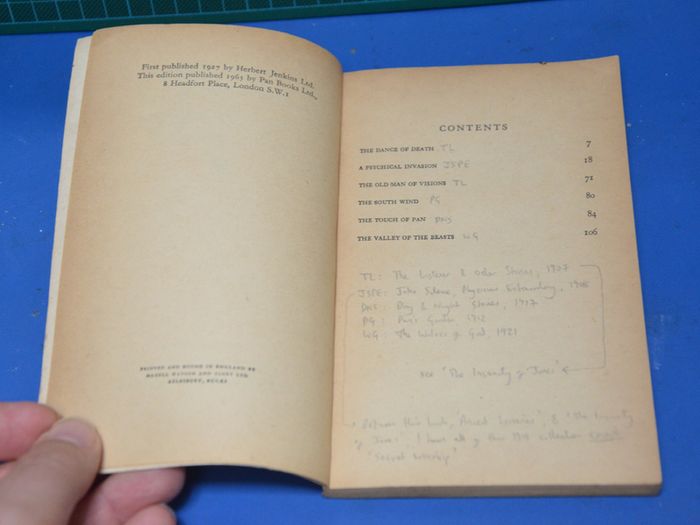 First published 1927 by Herbert Jenkins Ltd.
This edition published 1963 by Pan Books Ltd.,
8 Headfort Place, London S.W.1
PRINTED AND BOUND IN ENGLAND BY
HAZELL WATSON AND VINEY LTD
AYLESBURY, BUCKS
CONTENTS
THE DANCE OF DEATH TL 7
A PSYCHICAL INVASION JSPE 18
THE OLD MAN OF VISIONS TL 71
THE SOUTH WIND PG 80
THE TOUCH OF PAN DNS 84
THE VALLEY OF THE BEASTS WG 106
TL: The Listener & Other Stories, 1907
JSPE: John Silence, Physician Extraordinary, 1908
DNS: Day & Night Stories, 1917
PG: Pan's Garden 1912
WG: The Wolves of God, 1921
"The Insanity of Jones"
Between this book, 'Ancient Sorceries', & 'The Insanity
of Jones', I have all of this collection except
'Secret Worship'